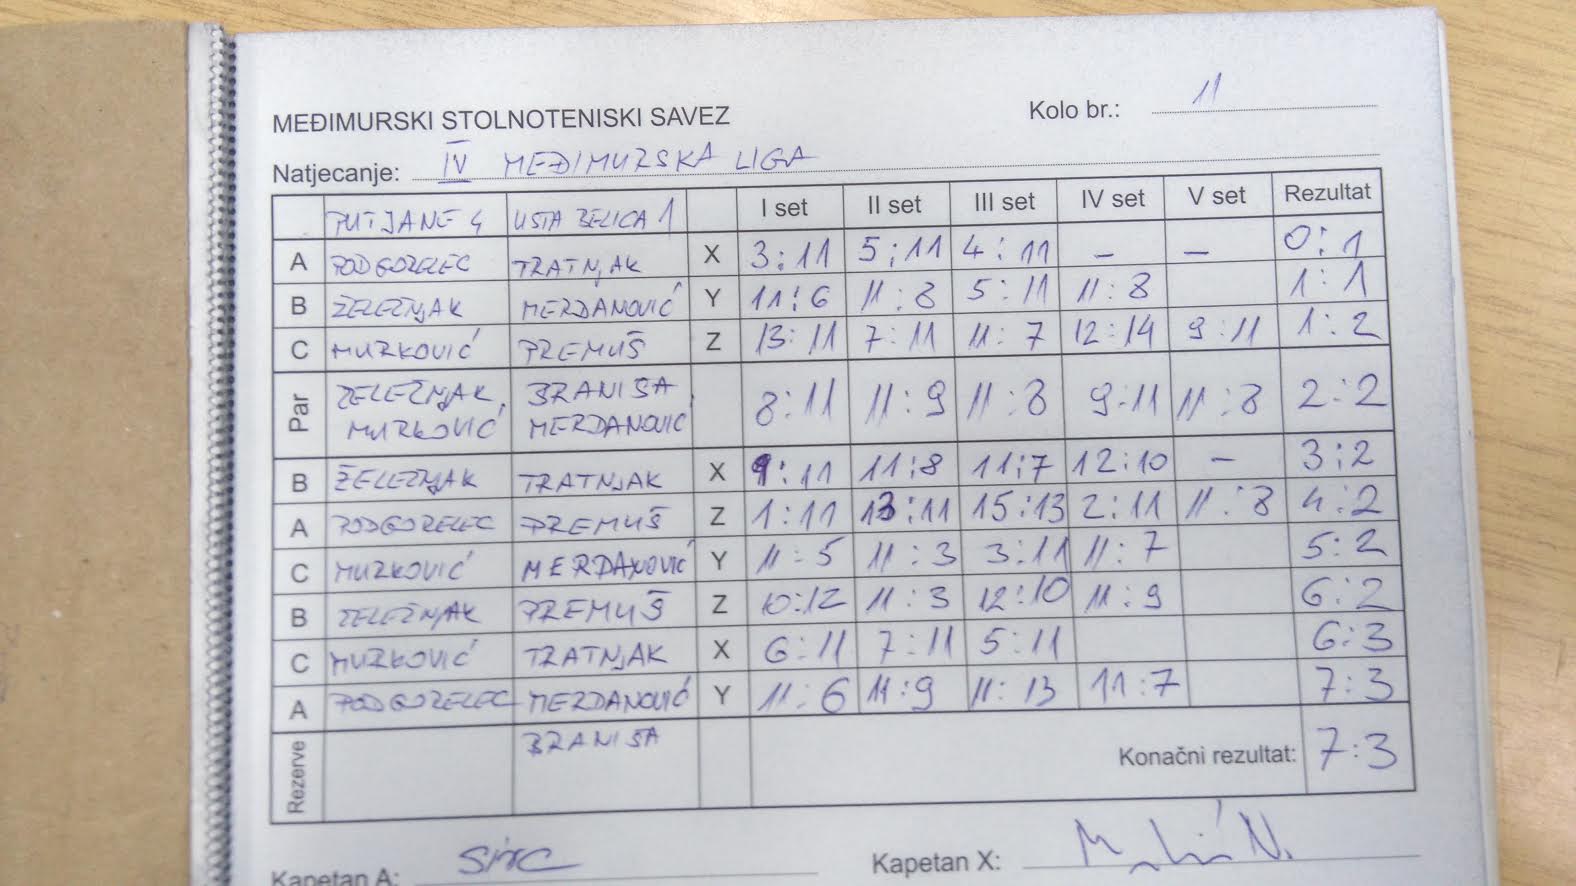 MEĐIMURSKI STOLNOTENISKI SAVEZ
Kolo br.: 11
Natjecanje: IV MEĐIMURSKA LIGA
PUTJANE 4 USTA BELICA 1 I set II set III set IV set V set Rezultat
A PODGORELEC TRATNJAK X 3:11 5:11 4:11 – – 0:1
B ŽELEZNJAK MERDANOVIĆ Y 11:6 11:8 5:11 11:8 1:1
C MURKOVIĆ PREMUŠ Z 13:11 7:11 11:7 12:14 9:11 1:2
Par ŽELEZNJAK, BRANISA, 8:11 11:9 11:8 9:11 11:8 2:2
MURKOVIĆ MERDANOVIĆ
B ŽELEZNJAK TRATNJAK X 9:11 11:8 11:7 12:10 – 3:2
A PODGORELEC PREMUŠ Z 1:11 13:11 15:13 2:11 11:8 4:2
C MURKOVIĆ MERDANOVIĆ Y 11:5 11:3 3:11 11:7 5:2
B ŽELEZNJAK PREMUŠ Z 10:12 11:3 12:10 11:9 6:2
C MURKOVIĆ TRATNJAK X 6:11 7:11 5:11 6:3
A PODGORELEC MERDANOVIĆ Y 11:6 11:9 11:13 11:7 7:3
Rezerve BRANISA Konačni rezultat: 7:3
Kapetan A: Kapetan X: